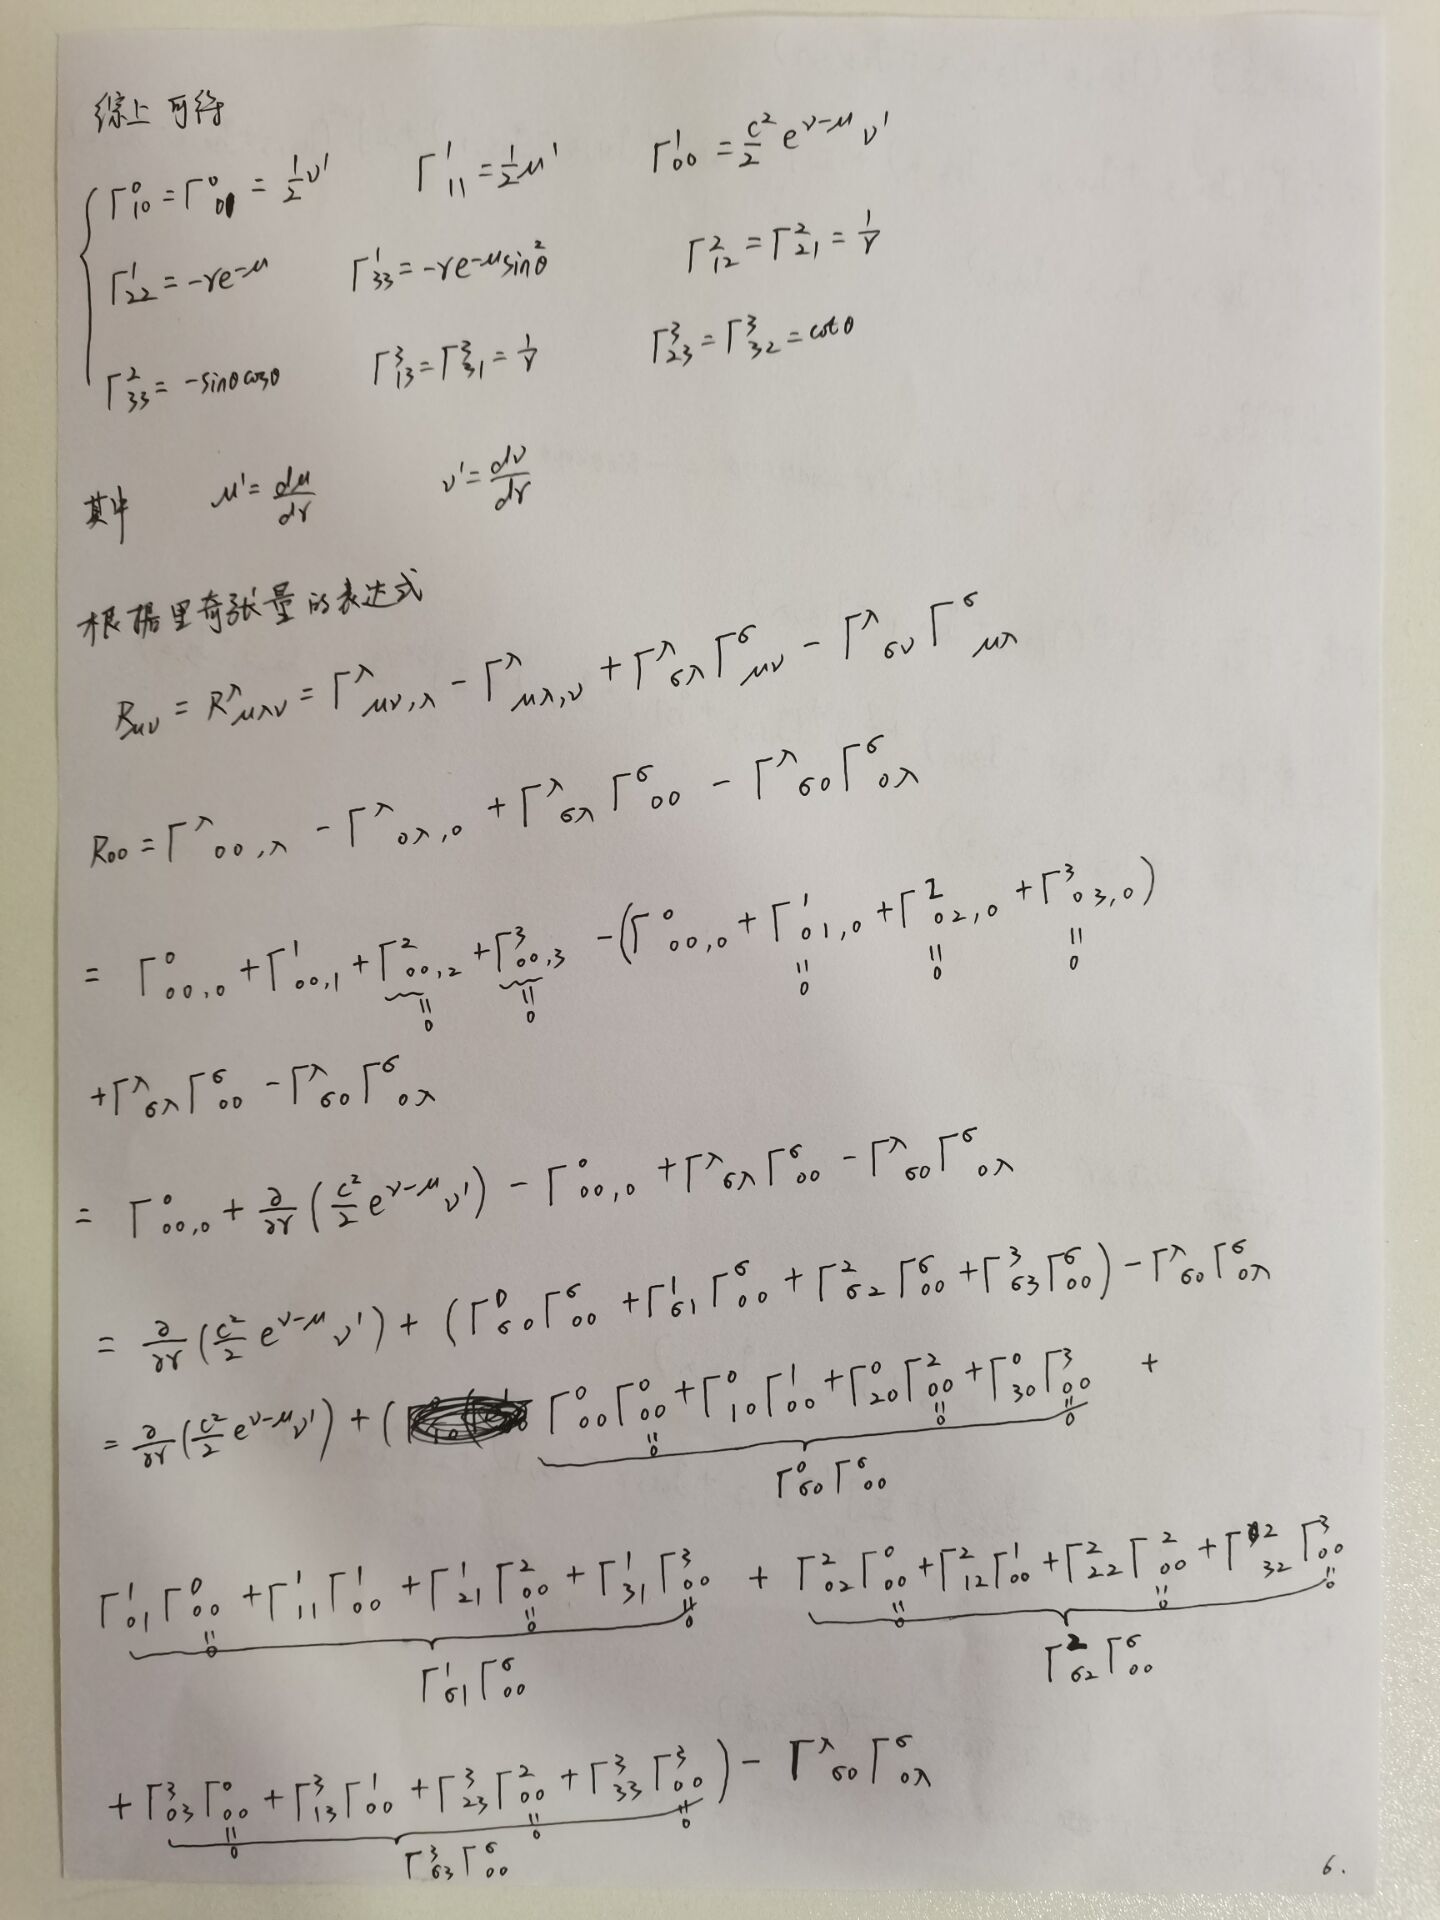 综上可得
Γ⁰₁₀ = Γ⁰₀₁ = ½ν′ Γ¹₁₁ = ½μ′ Γ¹₀₀ = c²/2 e^{ν-μ} ν′
Γ¹₂₂ = -re^{-μ} Γ¹₃₃ = -re^{-μ}sin²θ Γ²₁₂ = Γ²₂₁ = 1/r
Γ²₃₃ = -sinθcosθ Γ³₁₃ = Γ³₃₁ = 1/r Γ³₂₃ = Γ³₃₂ = cotθ
其中 μ′ = dμ/dr ν′ = dν/dr
根据里奇张量的表达式
R_{μν} = R^λ_{μλν} = Γ^λ_{μν,λ} - Γ^λ_{μλ,ν} + Γ^λ_{σλ} Γ^σ_{μν} - Γ^λ_{σν} Γ^σ_{μλ}
R₀₀ = Γ^λ_{00,λ} - Γ^λ_{0λ,0} + Γ^λ_{σλ} Γ^σ_{00} - Γ^λ_{σ0} Γ^σ_{0λ}
= Γ⁰_{00,0} + Γ¹_{00,1} + Γ²_{00,2} + Γ³_{00,3} - (Γ⁰_{00,0} + Γ¹_{01,0} + Γ²_{02,0} + Γ³_{03,0})
= 0 = 0 = 0 = 0 = 0
+ Γ^λ_{σλ} Γ^σ_{00} - Γ^λ_{σ0} Γ^σ_{0λ}
= Γ⁰_{00,0} + ∂/∂r (c²/2 e^{ν-μ} ν′) - Γ⁰_{00,0} + Γ^λ_{σλ} Γ^σ_{00} - Γ^λ_{σ0} Γ^σ_{0λ}
= ∂/∂r (c²/2 e^{ν-μ} ν′) + (Γ⁰_{σ0} Γ^σ_{00} + Γ¹_{σ1} Γ^σ_{00} + Γ²_{σ2} Γ^σ_{00} + Γ³_{σ3} Γ^σ_{00}) - Γ^λ_{σ0} Γ^σ_{0λ}
= ∂/∂r (c²/2 e^{ν-μ} ν′) + (Γ⁰₀₀ Γ⁰₀₀ + Γ⁰₁₀ Γ¹₀₀ + Γ⁰₂₀ Γ²₀₀ + Γ⁰₃₀ Γ³₀₀ +
= 0 = 0 = 0
Γ⁰_{σ0} Γ^σ_{00}
Γ¹₀₁ Γ⁰₀₀ + Γ¹₁₁ Γ¹₀₀ + Γ¹₂₁ Γ²₀₀ + Γ¹₃₁ Γ³₀₀ + Γ²₀₂ Γ⁰₀₀ + Γ²₁₂ Γ¹₀₀ + Γ²₂₂ Γ²₀₀ + Γ²₃₂ Γ³₀₀
= 0 = 0 = 0 = 0 = 0 = 0
Γ¹_{σ1} Γ^σ_{00} Γ²_{σ2} Γ^σ_{00}
+ Γ³₀₃ Γ⁰₀₀ + Γ³₁₃ Γ¹₀₀ + Γ³₂₃ Γ²₀₀ + Γ³₃₃ Γ³₀₀) - Γ^λ_{σ0} Γ^σ_{0λ}
= 0 = 0 = 0
Γ³_{σ3} Γ^σ_{00}
6.